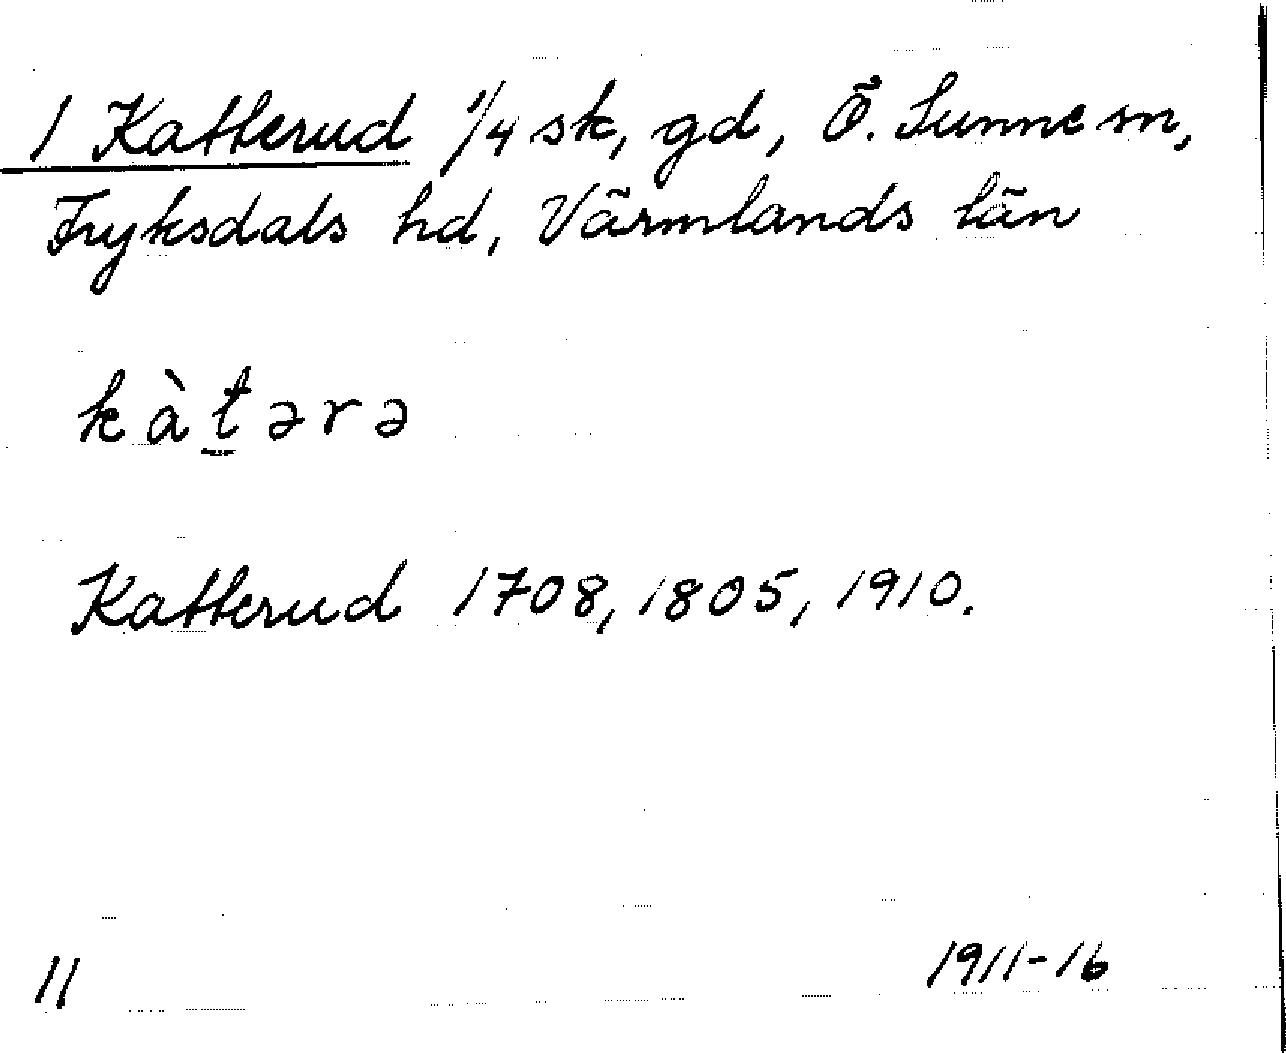 1 Katterud 1/4 sk, gd, Ö. Sunne sn,
Fryksdals hd, Värmlands län
kàt̲ərə
Katterud 1708, 1805, 1910.
11 1911-16